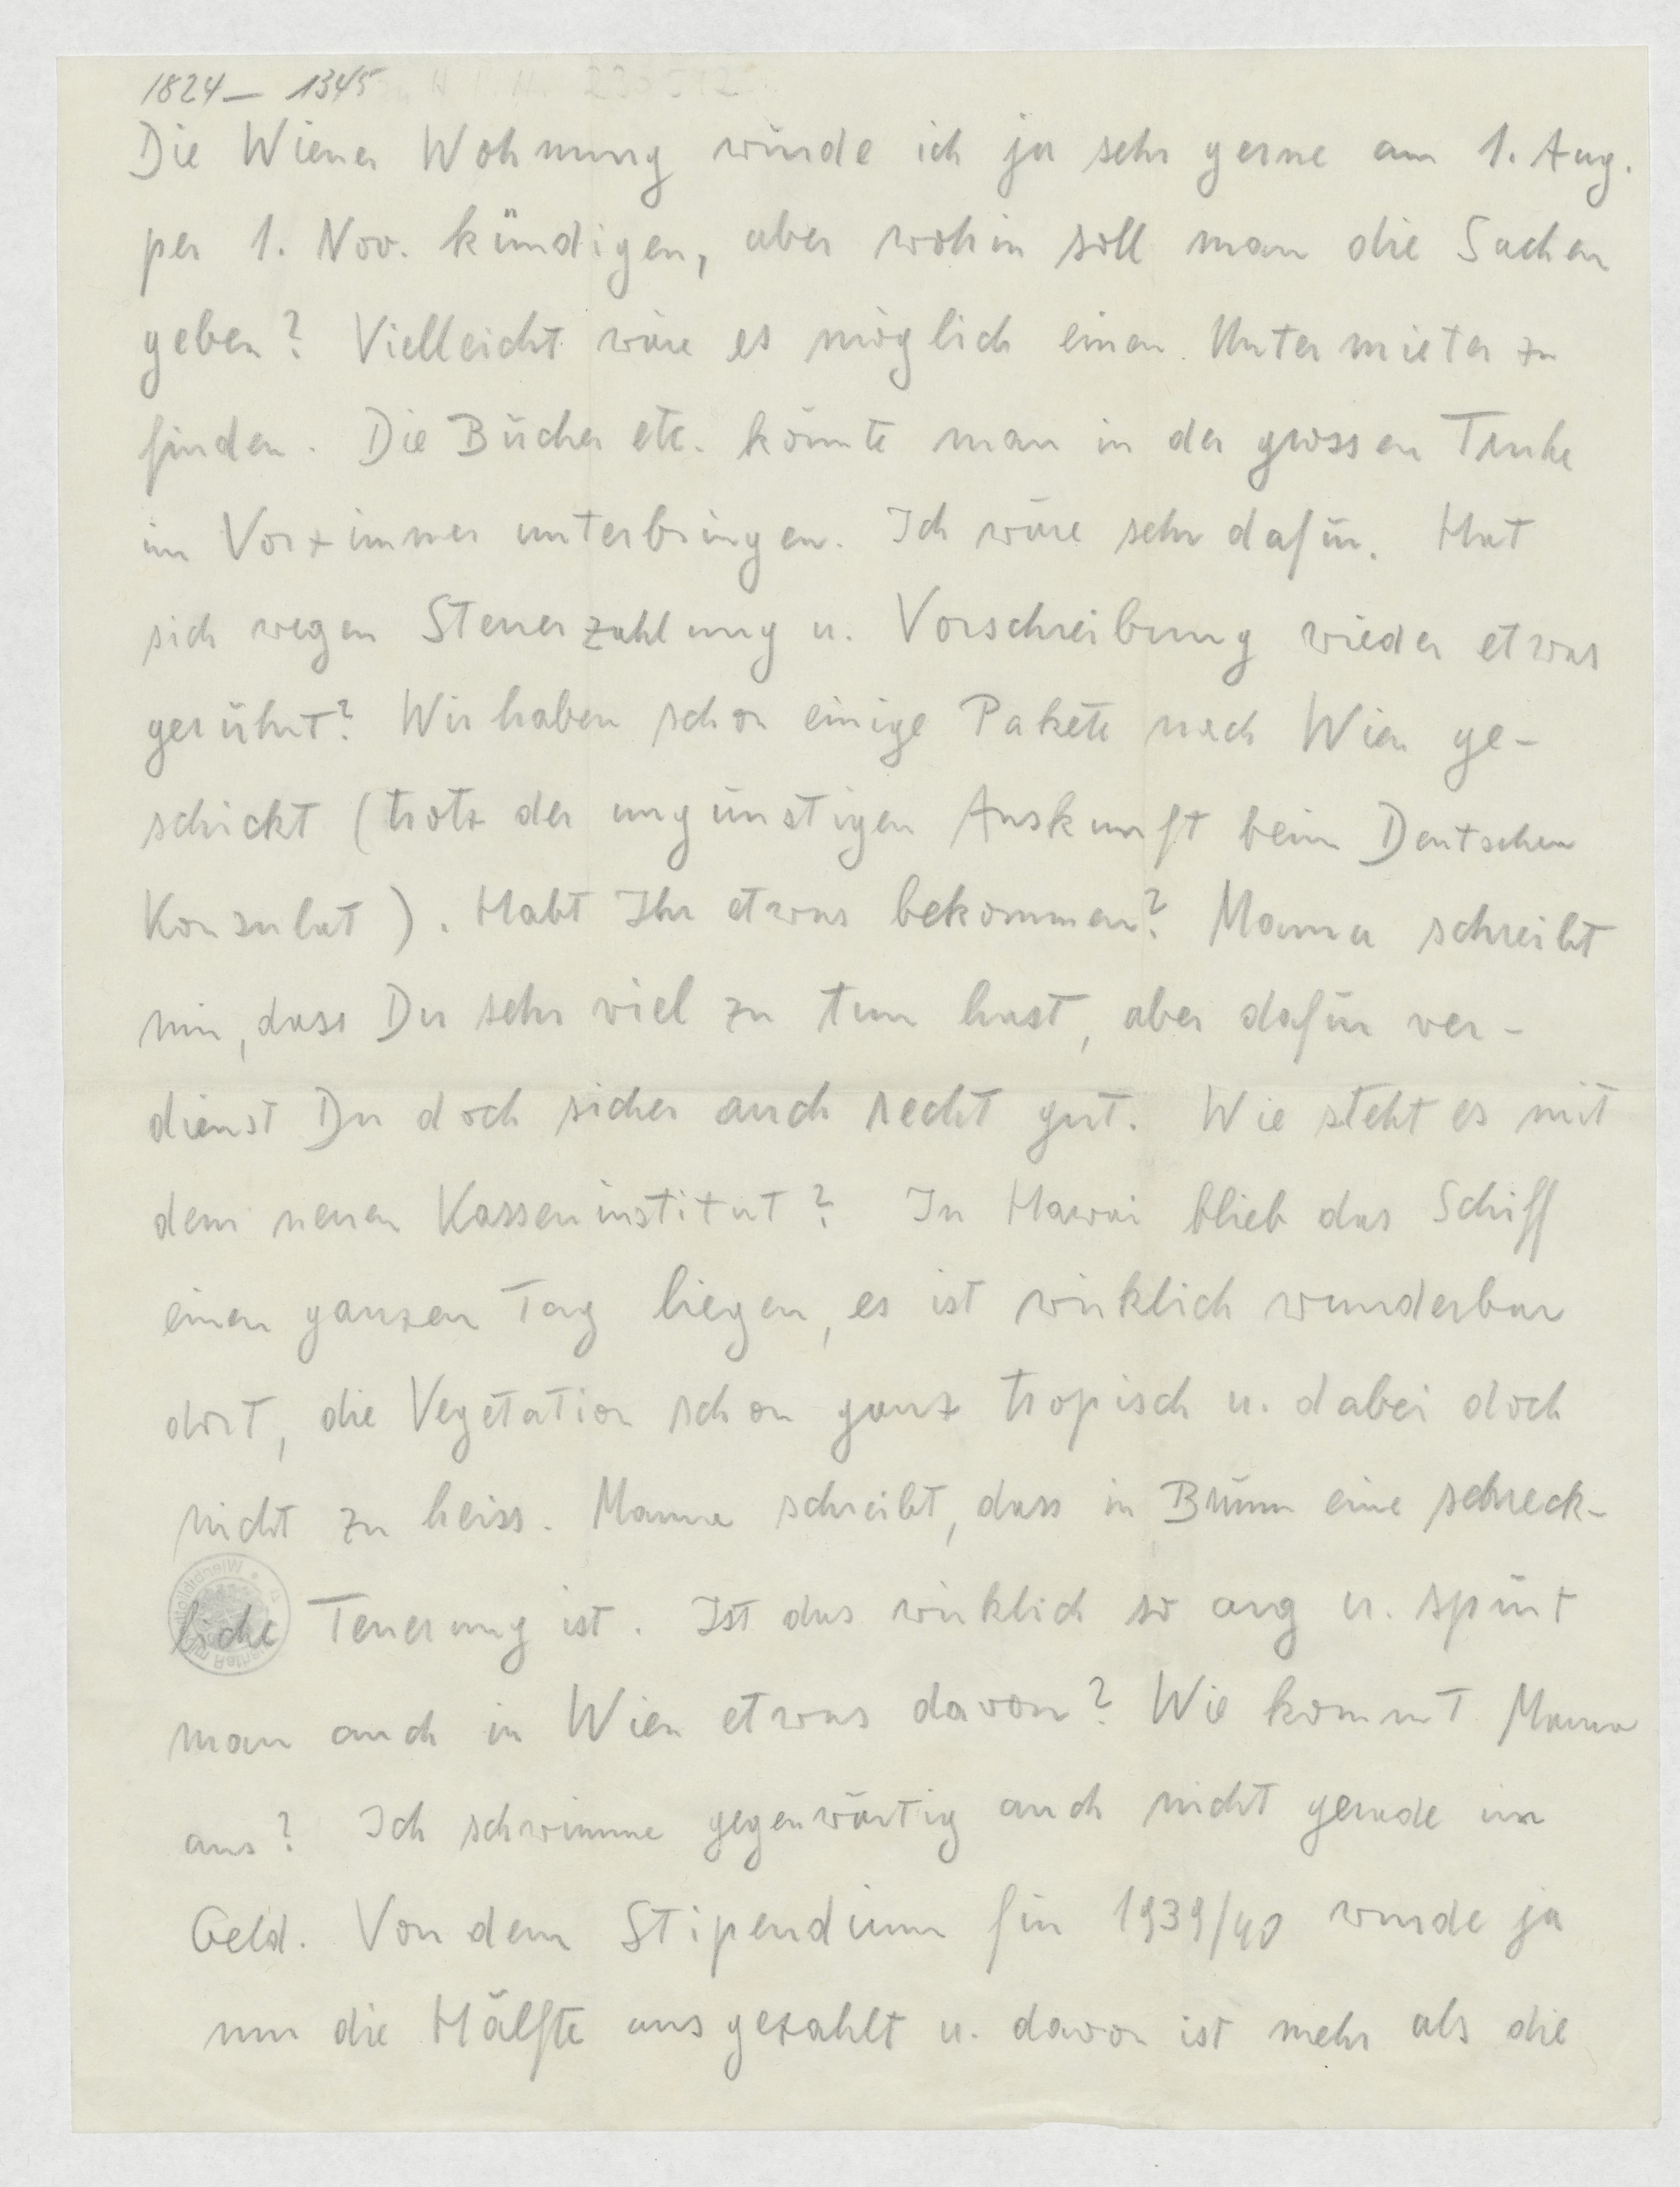 1824 — 1345
Die Wiener Wohnung würde ich ja sehr gerne am 1. Aug.
per 1. Nov. kündigen, aber wohin soll man die Sachen
geben? Vielleicht wäre es möglich einen Untermieter zu
finden. Die Bücher etc. könnte man in der grossen Truhe
im Vorzimmer unterbringen. Ich wäre sehr dafür. Hat
sich wegen Steuerzahlung u. Vorschreibung wieder etwas
gerührt? Wir haben schon einige Pakete nach Wien ge-
schickt (trotz der ungünstigen Auskunft beim Deutschen
Konsulat). Habt Ihr etwas bekommen? Mama schreibt
mir, dass Du sehr viel zu tun hast, aber dafür ver-
dienst Du doch sicher auch recht gut. Wie steht es mit
dem neuen Kasseninstitut? In Hawai blieb das Schiff
einen ganzen Tag liegen, es ist wirklich wunderbar
dort, die Vegetation schon ganz tropisch u. dabei doch
nicht zu heiss. Mama schreibt, dass in Brünn eine schreck-
liche Teuerung ist. Ist das wirklich so arg u. spürt
man auch in Wien etwas davon? Wie kommt Mama
aus? Ich schwimme gegenwärtig auch nicht gerade im
Geld. Von dem Stipendium für 1939/40 wurde ja
nur die Hälfte ausgezahlt u. davon ist mehr als die